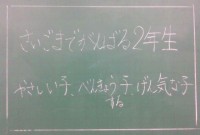 さいごまでがんばる2年生
やさしい子、べんきょうする子、げん気な子